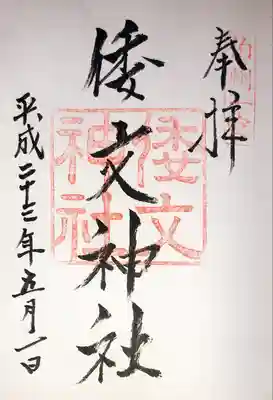 奉拝
倭文神社
倭文
神社
平成二十三年五月一日